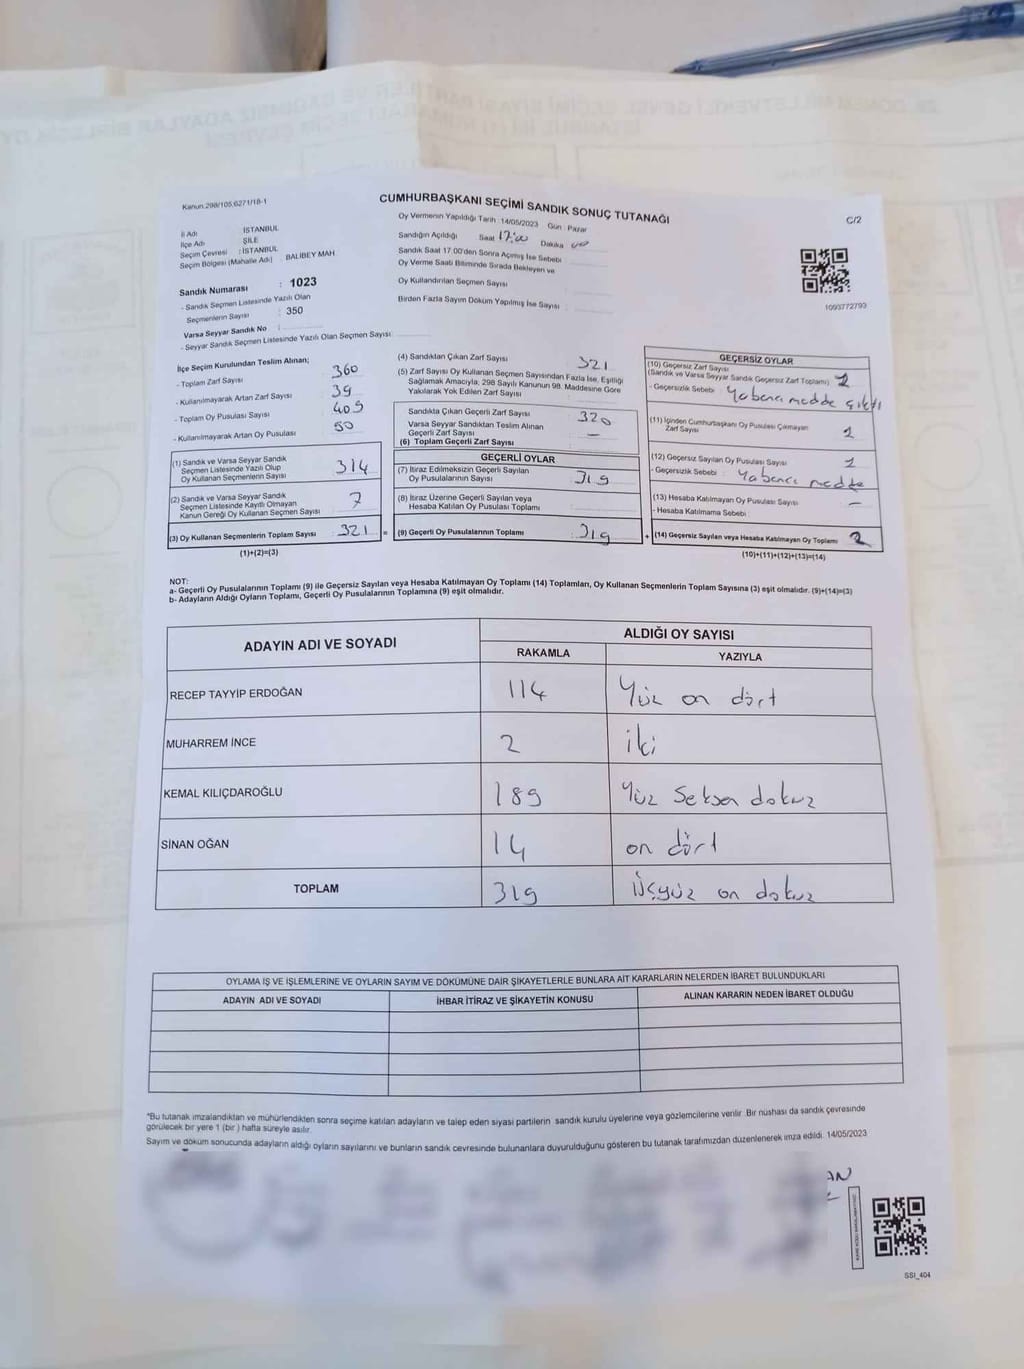 Kanun 298/105,6271/18-1
CUMHURBAŞKANI SEÇİMİ SANDIK SONUÇ TUTANAĞI
C/2
İl Adı : İSTANBUL
İlçe Adı : ŞİLE
Seçim Çevresi : İSTANBUL
Seçim Bölgesi (Mahalle Adı) : BALIBEY MAH.
Sandık Numarası : 1023
- Sandık Seçmen Listesinde Yazılı Olan
Seçmenlerin Sayısı : 350
Varsa Seyyar Sandık No :
- Seyyar Sandık Seçmen Listesinde Yazılı Olan Seçmen Sayısı:
Oy Vermenin Yapıldığı Tarih : 14/05/2023 Gün : Pazar
Sandığın Açıldığı Saat 17:00 Dakika 00
Sandık Saat 17:00'den Sonra Açılmış İse Sebebi
Oy Verme Saati Bitiminde Sırada Bekleyen ve
Oy Kullandırılan Seçmen Sayısı
Birden Fazla Sayım Döküm Yapılmış İse Sayısı :
1093772793
İlçe Seçim Kurulundan Teslim Alınan;
- Toplam Zarf Sayısı 360
- Kullanılmayarak Artan Zarf Sayısı 39
- Toplam Oy Pusulası Sayısı 409
- Kullanılmayarak Artan Oy Pusulası 50
(1) Sandık ve Varsa Seyyar Sandık
Seçmen Listesinde Yazılı Olup
Oy Kullanan Seçmenlerin Sayısı 314
(2) Sandık ve Varsa Seyyar Sandık
Seçmen Listesinde Kayıtlı Olmayan
Kanun Gereği Oy Kullanan Seçmen Sayısı 7
(3) Oy Kullanan Seçmenlerin Toplam Sayısı 321 =
(1)+(2)=(3)
(4) Sandıktan Çıkan Zarf Sayısı 321
(5) Zarf Sayısı Oy Kullanan Seçmen Sayısından Fazla İse, Eşitliği
Sağlamak Amacıyla, 298 Sayılı Kanunun 98. Maddesine Göre
Yakılarak Yok Edilen Zarf Sayısı
Sandıkta Çıkan Geçerli Zarf Sayısı 320
Varsa Seyyar Sandıktan Teslim Alınan
Geçerli Zarf Sayısı –
(6) Toplam Geçerli Zarf Sayısı
GEÇERLİ OYLAR
(7) İtiraz Edilmeksizin Geçerli Sayılan
Oy Pusulalarının Sayısı 319
(8) İtiraz Üzerine Geçerli Sayılan veya
Hesaba Katılan Oy Pusulası Toplamı
(9) Geçerli Oy Pusulalarının Toplamı 319 +
GEÇERSİZ OYLAR
(10) Geçersiz Zarf Sayısı
(Sandık ve Varsa Seyyar Sandık Geçersiz Zarf Toplamı)
- Geçersizlik Sebebi : Yabancı madde çıktı
(11) İçinden Cumhurbaşkanı Oy Pusulası Çıkmayan
Zarf Sayısı
(12) Geçersiz Sayılan Oy Pusulası Sayısı
- Geçersizlik Sebebi : Yabancı madde
(13) Hesaba Katılmayan Oy Pusulası Sayısı –
- Hesaba Katılmama Sebebi :
(14) Geçersiz Sayılan veya Hesaba Katılmayan Oy Toplamı 2
(10)+(11)+(12)+(13)=(14)
NOT:
a- Geçerli Oy Pusulalarının Toplamı (9) ile Geçersiz Sayılan veya Hesaba Katılmayan Oy Toplamı (14) Toplamları, Oy Kullanan Seçmenlerin Toplam Sayısına (3) eşit olmalıdır. (9)+(14)=(3)
b- Adayların Aldığı Oyların Toplamı, Geçerli Oy Pusulalarının Toplamına (9) eşit olmalıdır.
ADAYIN ADI VE SOYADI
ALDIĞI OY SAYISI
RAKAMLA YAZIYLA
RECEP TAYYİP ERDOĞAN 114 Yüz on dört
MUHARREM İNCE 2 iki
KEMAL KILIÇDAROĞLU 189 Yüz Seksen dokuz
SİNAN OĞAN 14 on dört
TOPLAM 319 Üçyüz on dokuz
OYLAMA İŞ VE İŞLEMLERİNE VE OYLARIN SAYIM VE DÖKÜMÜNE DAİR ŞİKAYETLERLE BUNLARA AİT KARARLARIN NELERDEN İBARET BULUNDUKLARI
ADAYIN ADI VE SOYADI İHBAR İTİRAZ VE ŞİKAYETİN KONUSU ALINAN KARARIN NEDEN İBARET OLDUĞU
*Bu tutanak imzalandıktan ve mühürlendikten sonra seçime katılan adayların ve talep eden siyasi partilerin sandık kurulu üyelerine veya gözlemcilerine verilir. Bir nüshası da sandık çevresinde
görülecek bir yere 1 (bir) hafta süreyle asılır.
Sayım ve döküm sonucunda adayların aldığı oyların sayılarını ve bunların sandık çevresinde bulunanlara duyurulduğunu gösteren bu tutanak tarafımızdan düzenlenerek imza edildi. 14/05/2023
SSI_404